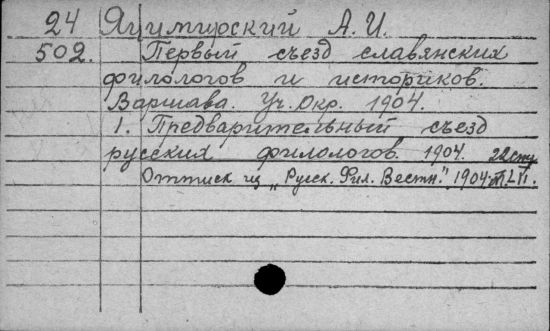 24 Яцимирский А. И.
502. Первый съезд славянских
филологов и историков.
Варшава. Уч. Окр. 1904.
1. Предварительный съезд
русских филологов. 1904. 22 стр.
Оттиск из „Русск. Фил. Вестн." 1904 т. LII.